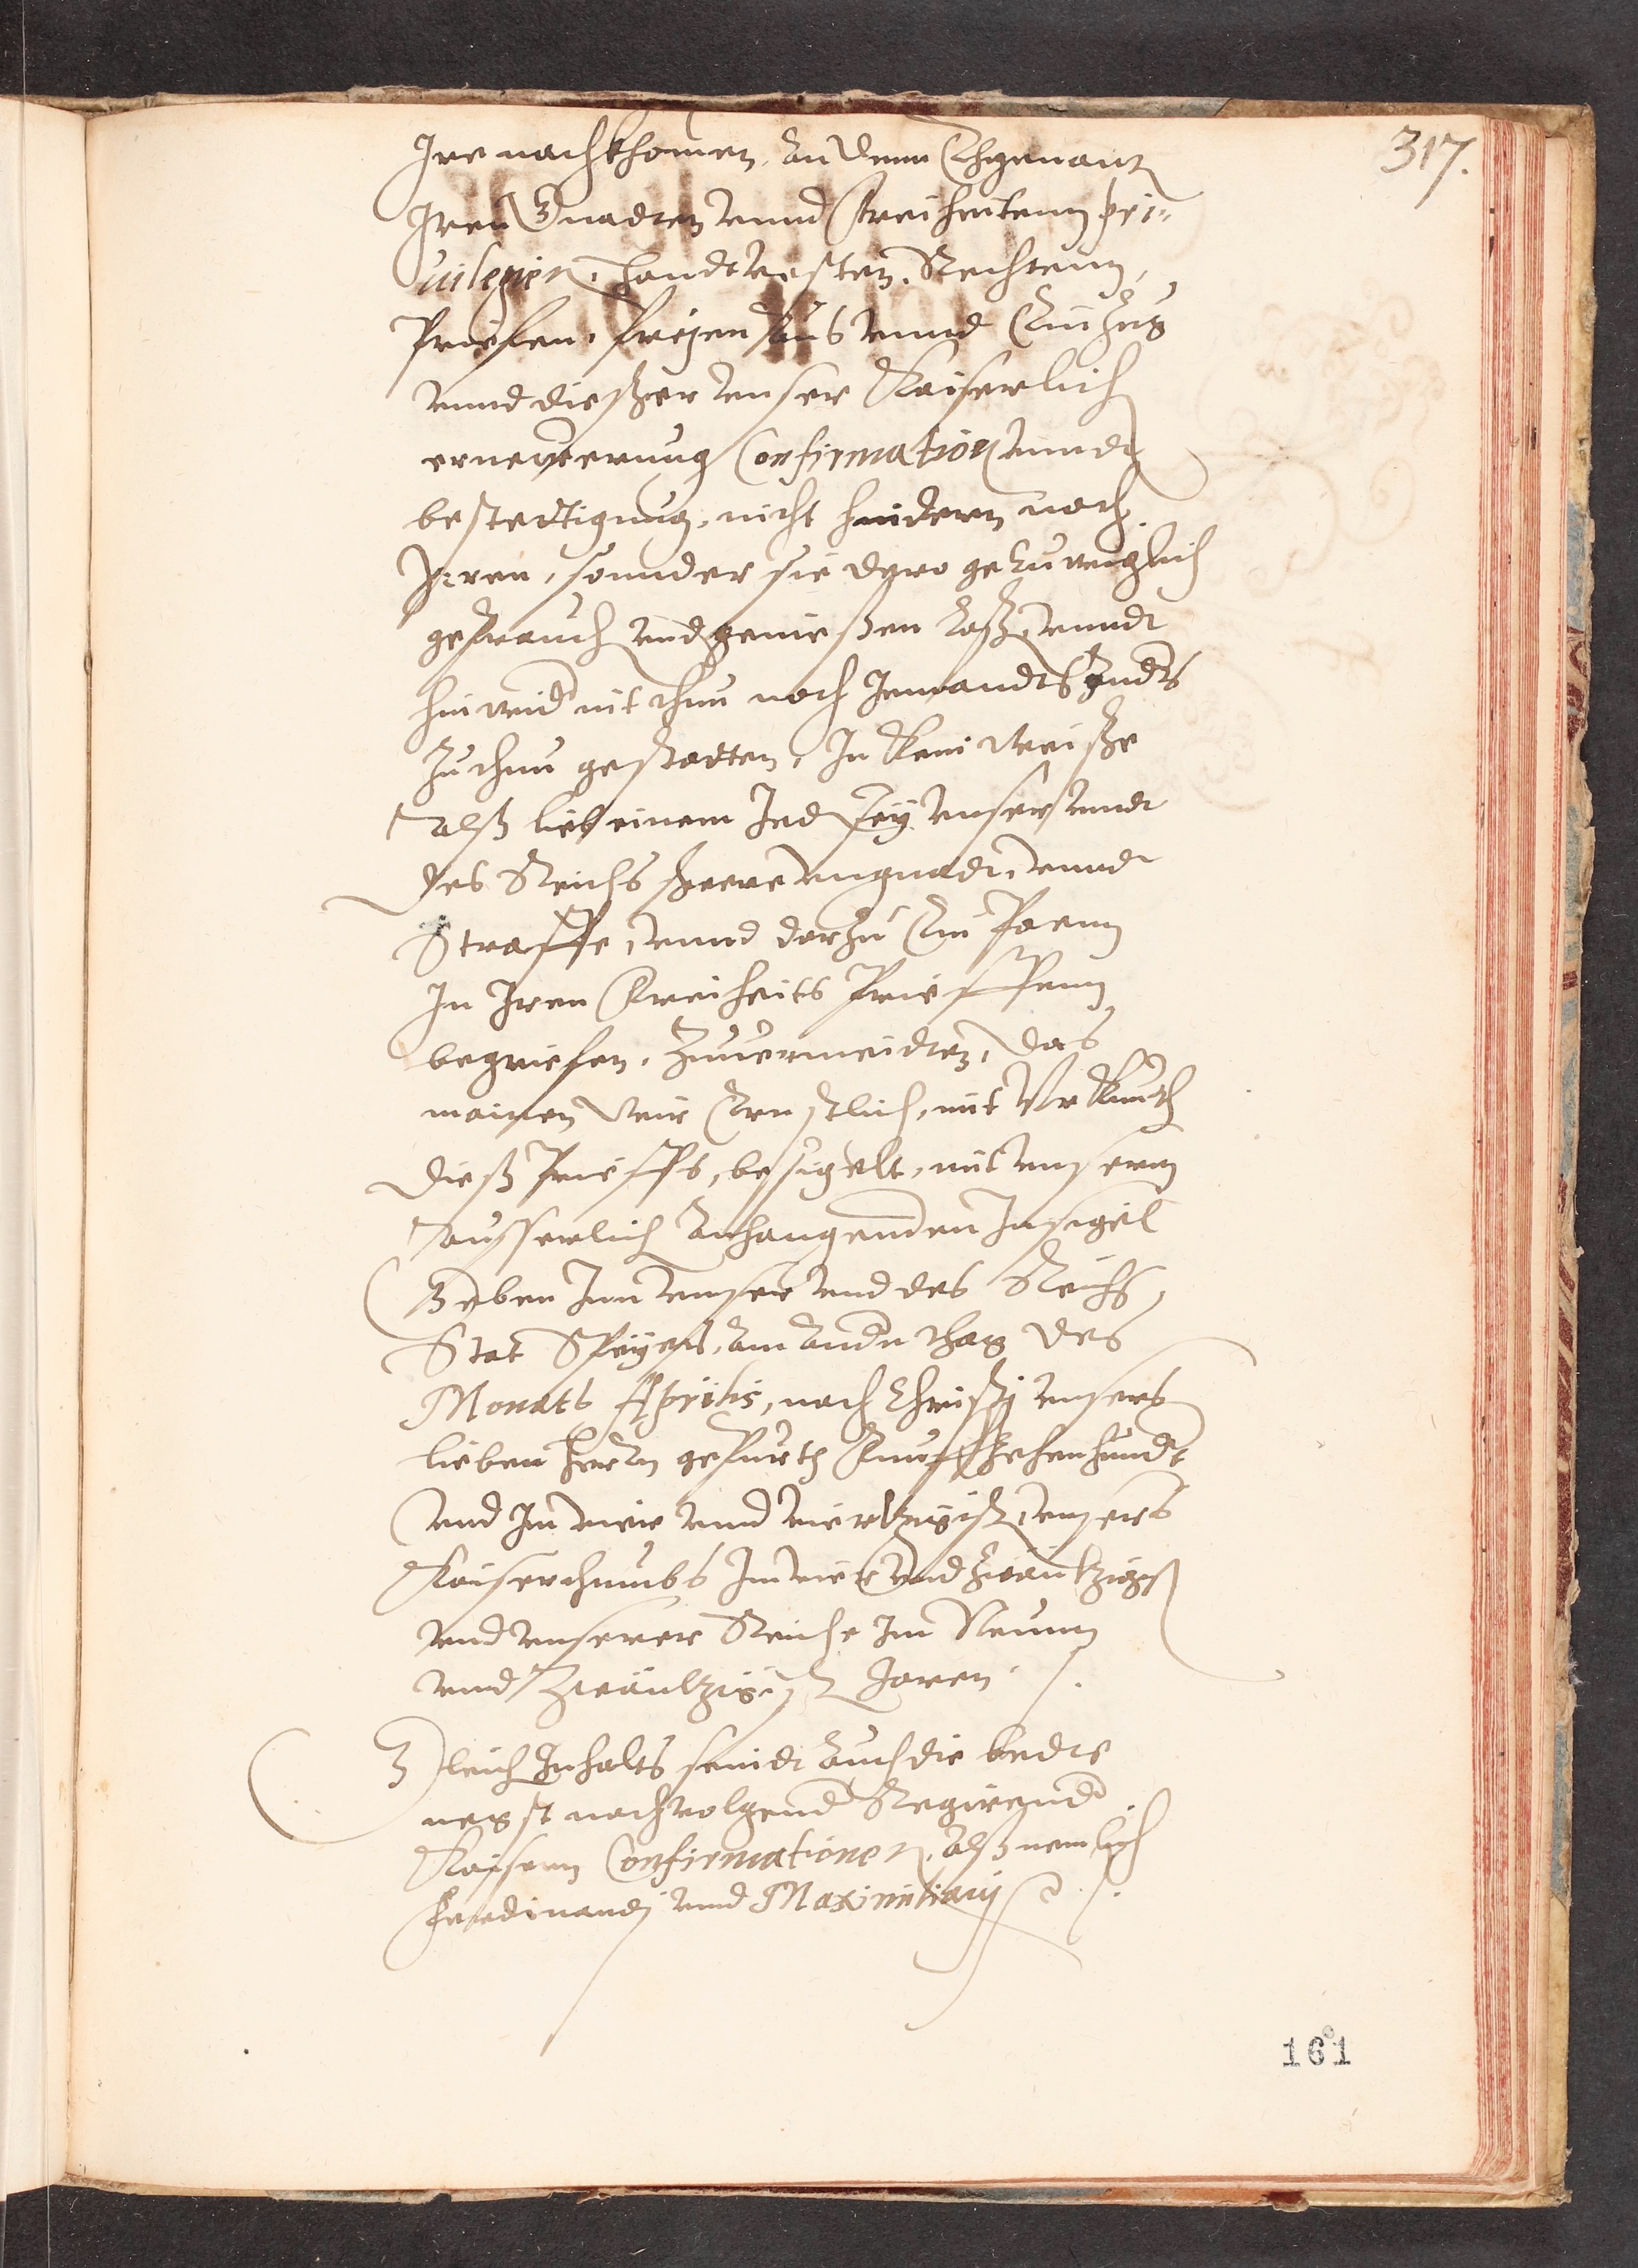 317.
Ire nachkhomen, an denn Ehgenantn
Iren Gnaden vnnd Freiheitenn pri-
uilegien, Handtvesten, Rechtenn,
Briefen, freyen Zug vnnd Einzug
vnnd dießer vnser Kaiserlich
erneẅerung Confirmation vnndt
bestettigung, nicht hindern noch
Irren, sonnder sie dero geruwiglich
gebrauch vnd genießen laßen, vnndt
hinwid nit thun noch Jemandts Andß
Zu thun gestadten, In kein Weiße
Alß lieb einem Jed sey vnser vnndt
des Reichs schwere vngnadt, vnndt
Straffe, vnnd darzu Ein Poenn
In Iren Freiheits Brieffenn
begriefen, Zuuermeiden, das
mainen Wir Ernstlich, mit Vrkundt
dieß Brieffs, besigelt, mit vnserm
Kaiserlich anhangenden Insigel
Geben Inn vnser vnd des Reichs
Stat Speyer, am andn thag des
Monats Aprilis, nach Christj vnsers
lieben Herrn geburth Funffzehenhundt
vnd Im vier vnnd vierzigist, vnsers
Kaiserthumbs Im vier vnd zwantzigist
vnd vnserer Reiche Im Neunn
vnnd Zwäntzigist Jaren.
Gleich Inhalts seindt auch die bede
negst nachvolgend Regirend
Kaisern Confirmationen, Alß nemlich
Ferdinandj vnnd Maximilianj
161